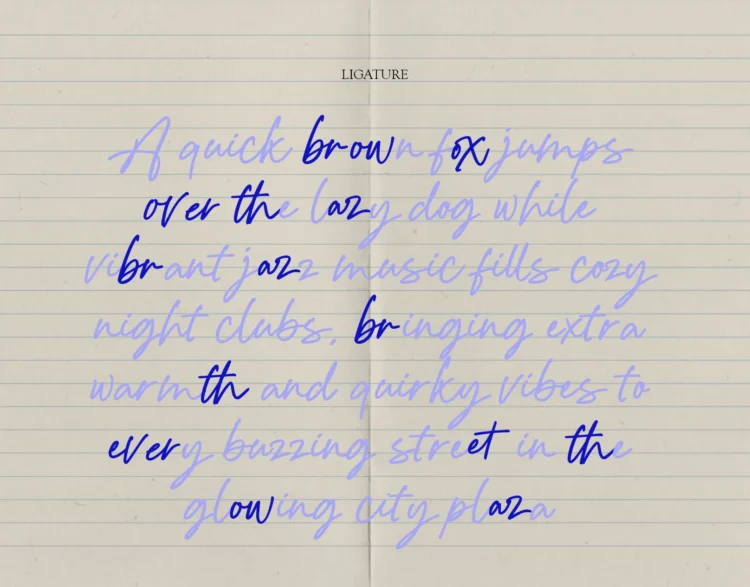 LIGATURE
A quick brown fox jumps
over the lazy dog while
vibrant jazz music fills cozy
night clubs, bringing extra
warmth and quirky vibes to
every buzzing street in the
glowing city plaza